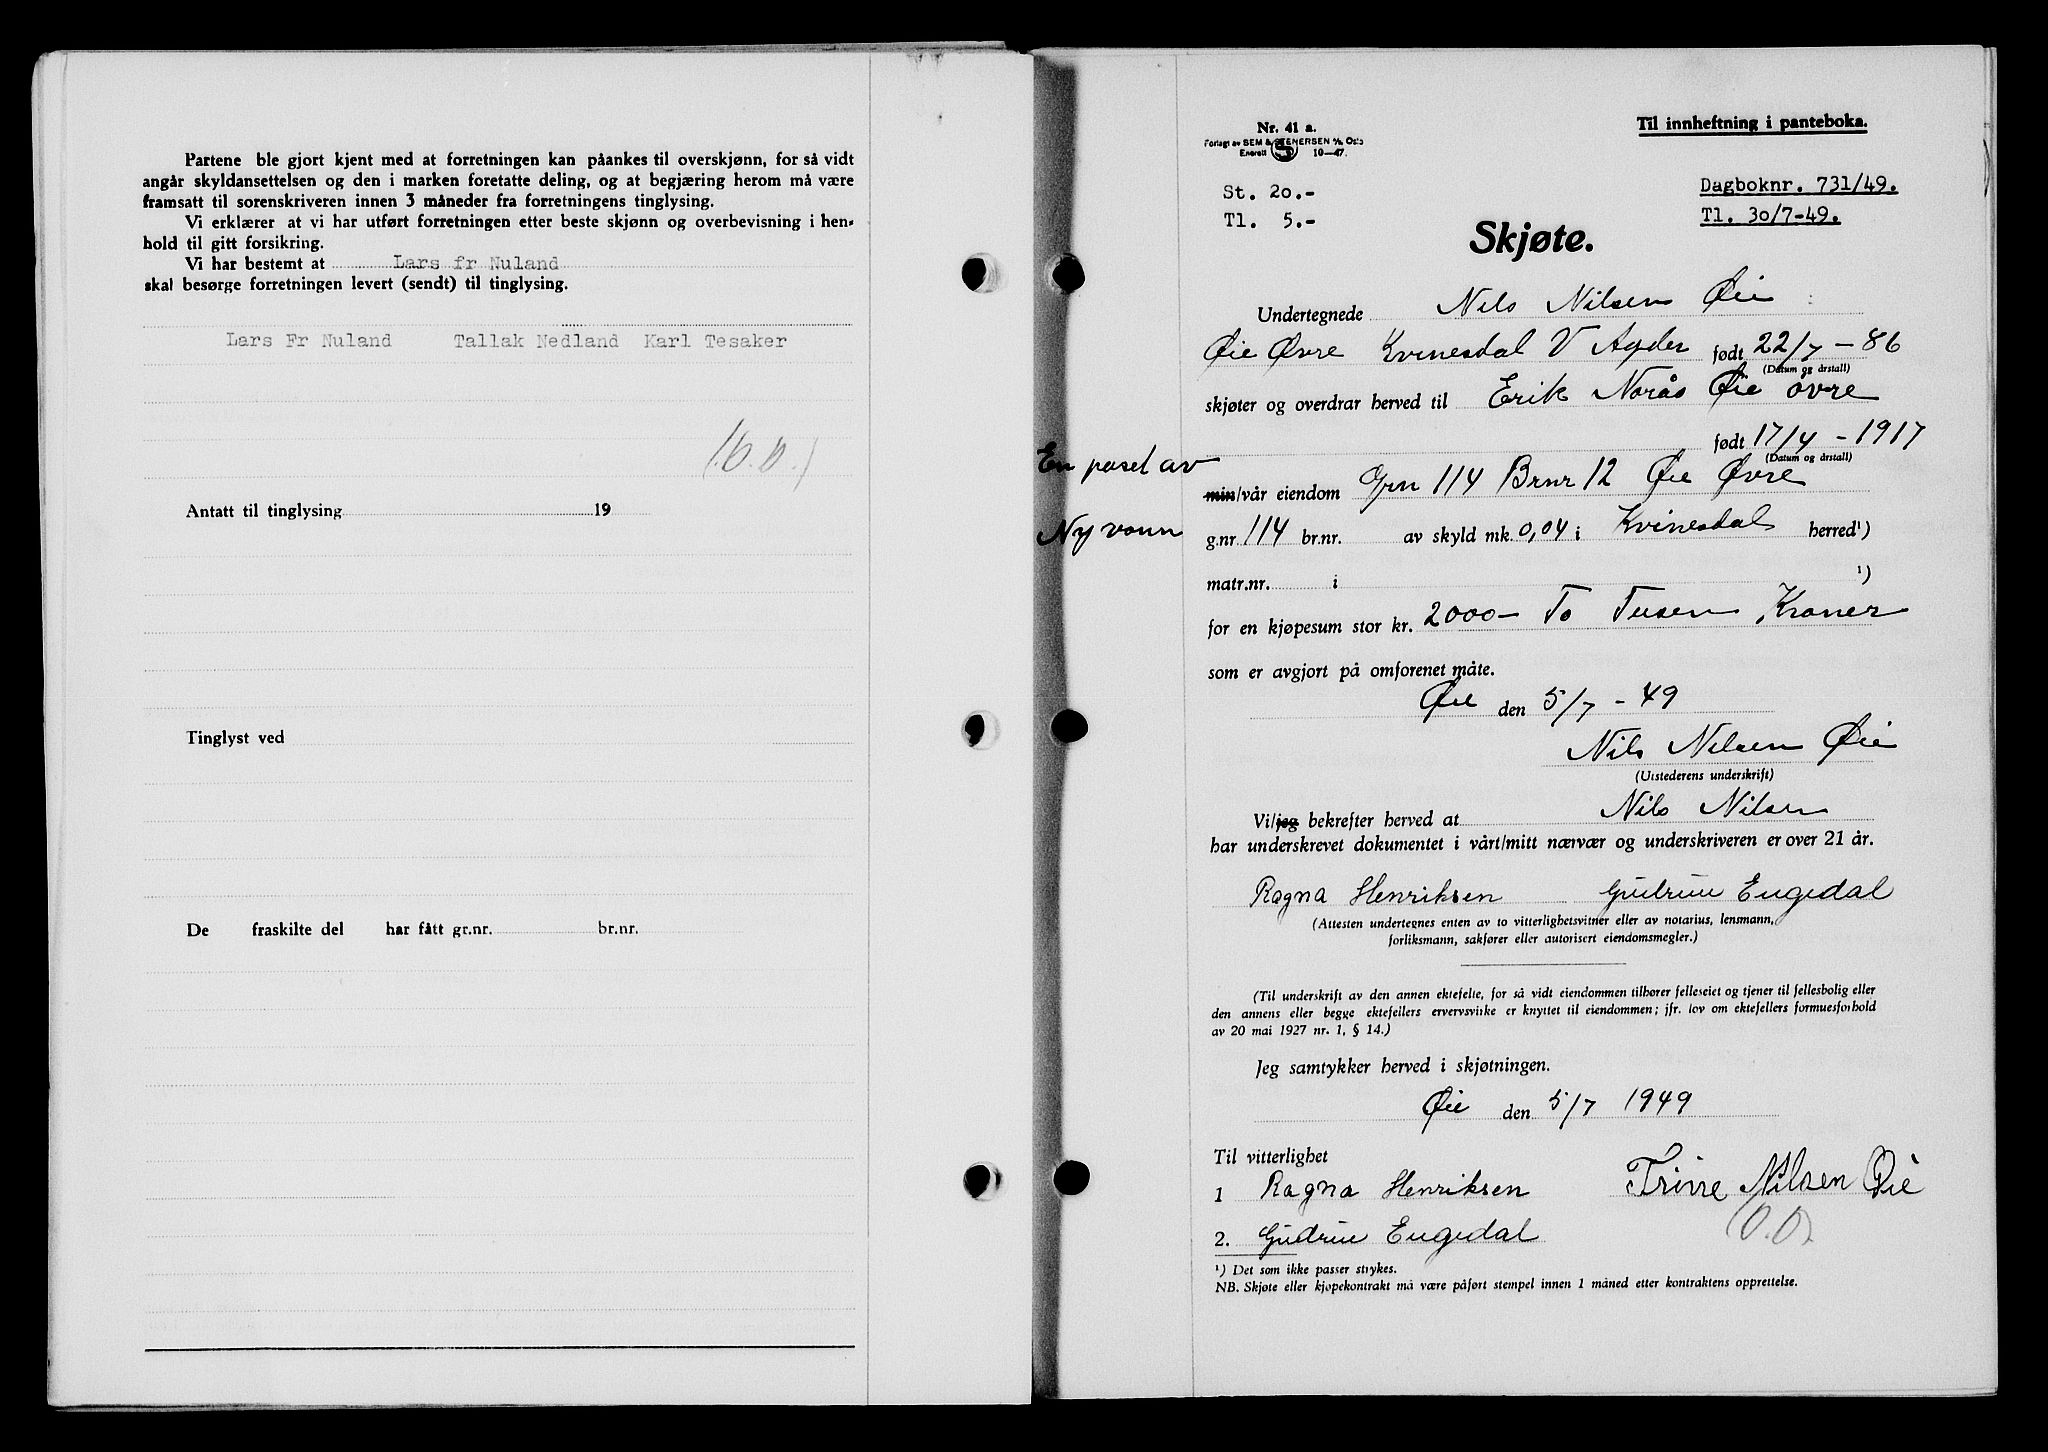 Partene ble gjort kjent med at forretningen kan påankes til overskjønn, for så vidt
angår skyldansettelsen og den i marken foretatte deling, og at begjæring herom må være
framsatt til sorenskriveren innen 3 måneder fra forretningens tinglysing.
Vi erklærer at vi har utført forretningen etter beste skjønn og overbevisning i hen-
hold til gitt forsikring.
Vi har bestemt at Lars fr Nuland
skal besørge forretningen levert (sendt) til tinglysing.
Lars Fr Nuland Tallak Nedland Karl Tesaker
Antatt til tinglysing 19
Tinglyst ved
De fraskilte del har fått gr.nr. br.nr.
Nr. 41 a.
Forlagt av SEM & STENERSEN A/S Oslo
Enerett S 10-47.
Til innheftning i panteboka.
St. 20.-
Tl. 5.-
Dagboknr. 731/49.
Tl. 30/7-49.
Skjøte.
Undertegnede Nils Nilsen Øie
Øie Øvre Kvinesdal V Agder født 22/7 - 86
(Datum og årstall)
skjøter og overdrar herved til Erik Norås Øie øvre
født 17/4 - 1917
(Datum og årstall)
En pasel av
min/vår eiendom Grn 114 Brnr 12 Øie Øvre
Ny vann
g.nr. 114 br.nr. av skyld mk. 0,04 i Kvinesdal herred¹)
matr.nr. i ¹)
for en kjøpesum stor kr. 2000- To Tusen Kroner
som er avgjort på omforenet måte.
Øie den 5/7 - 49
Nils Nilsen Øie
(Utstederens underskrift)
Vi/jeg bekrefter herved at Nils Nilsen
har underskrevet dokumentet i vårt/mitt nærvær og underskriveren er over 21 år.
Ragna Henriksen Gudrun Eugedal
(Attesten undertegnes enten av to vitterlighetsvitner eller av notarius, lensmann,
forliksmann, sakfører eller autorisert eiendomsmegler.)
(Til underskrift av den annen ektefelle, for så vidt eiendommen tilhører felleseiet og tjener til fellesbolig eller
den annens eller begge ektefellers ervervsvirke er knyttet til eiendommen; jfr. lov om ektefellers formuesforhold
av 20 mai 1927 nr. 1, § 14.)
Jeg samtykker herved i skjøtningen.
Øie den 5/7 1949
Til vitterlighet
1 Ragna Henriksen Trine Nilsen Øie
2. Gudrun Eugedal (O.O).
¹) Det som ikke passer strykes.
NB. Skjøte eller kjøpekontrakt må være påført stempel innen 1 måned etter kontraktens opprettelse.